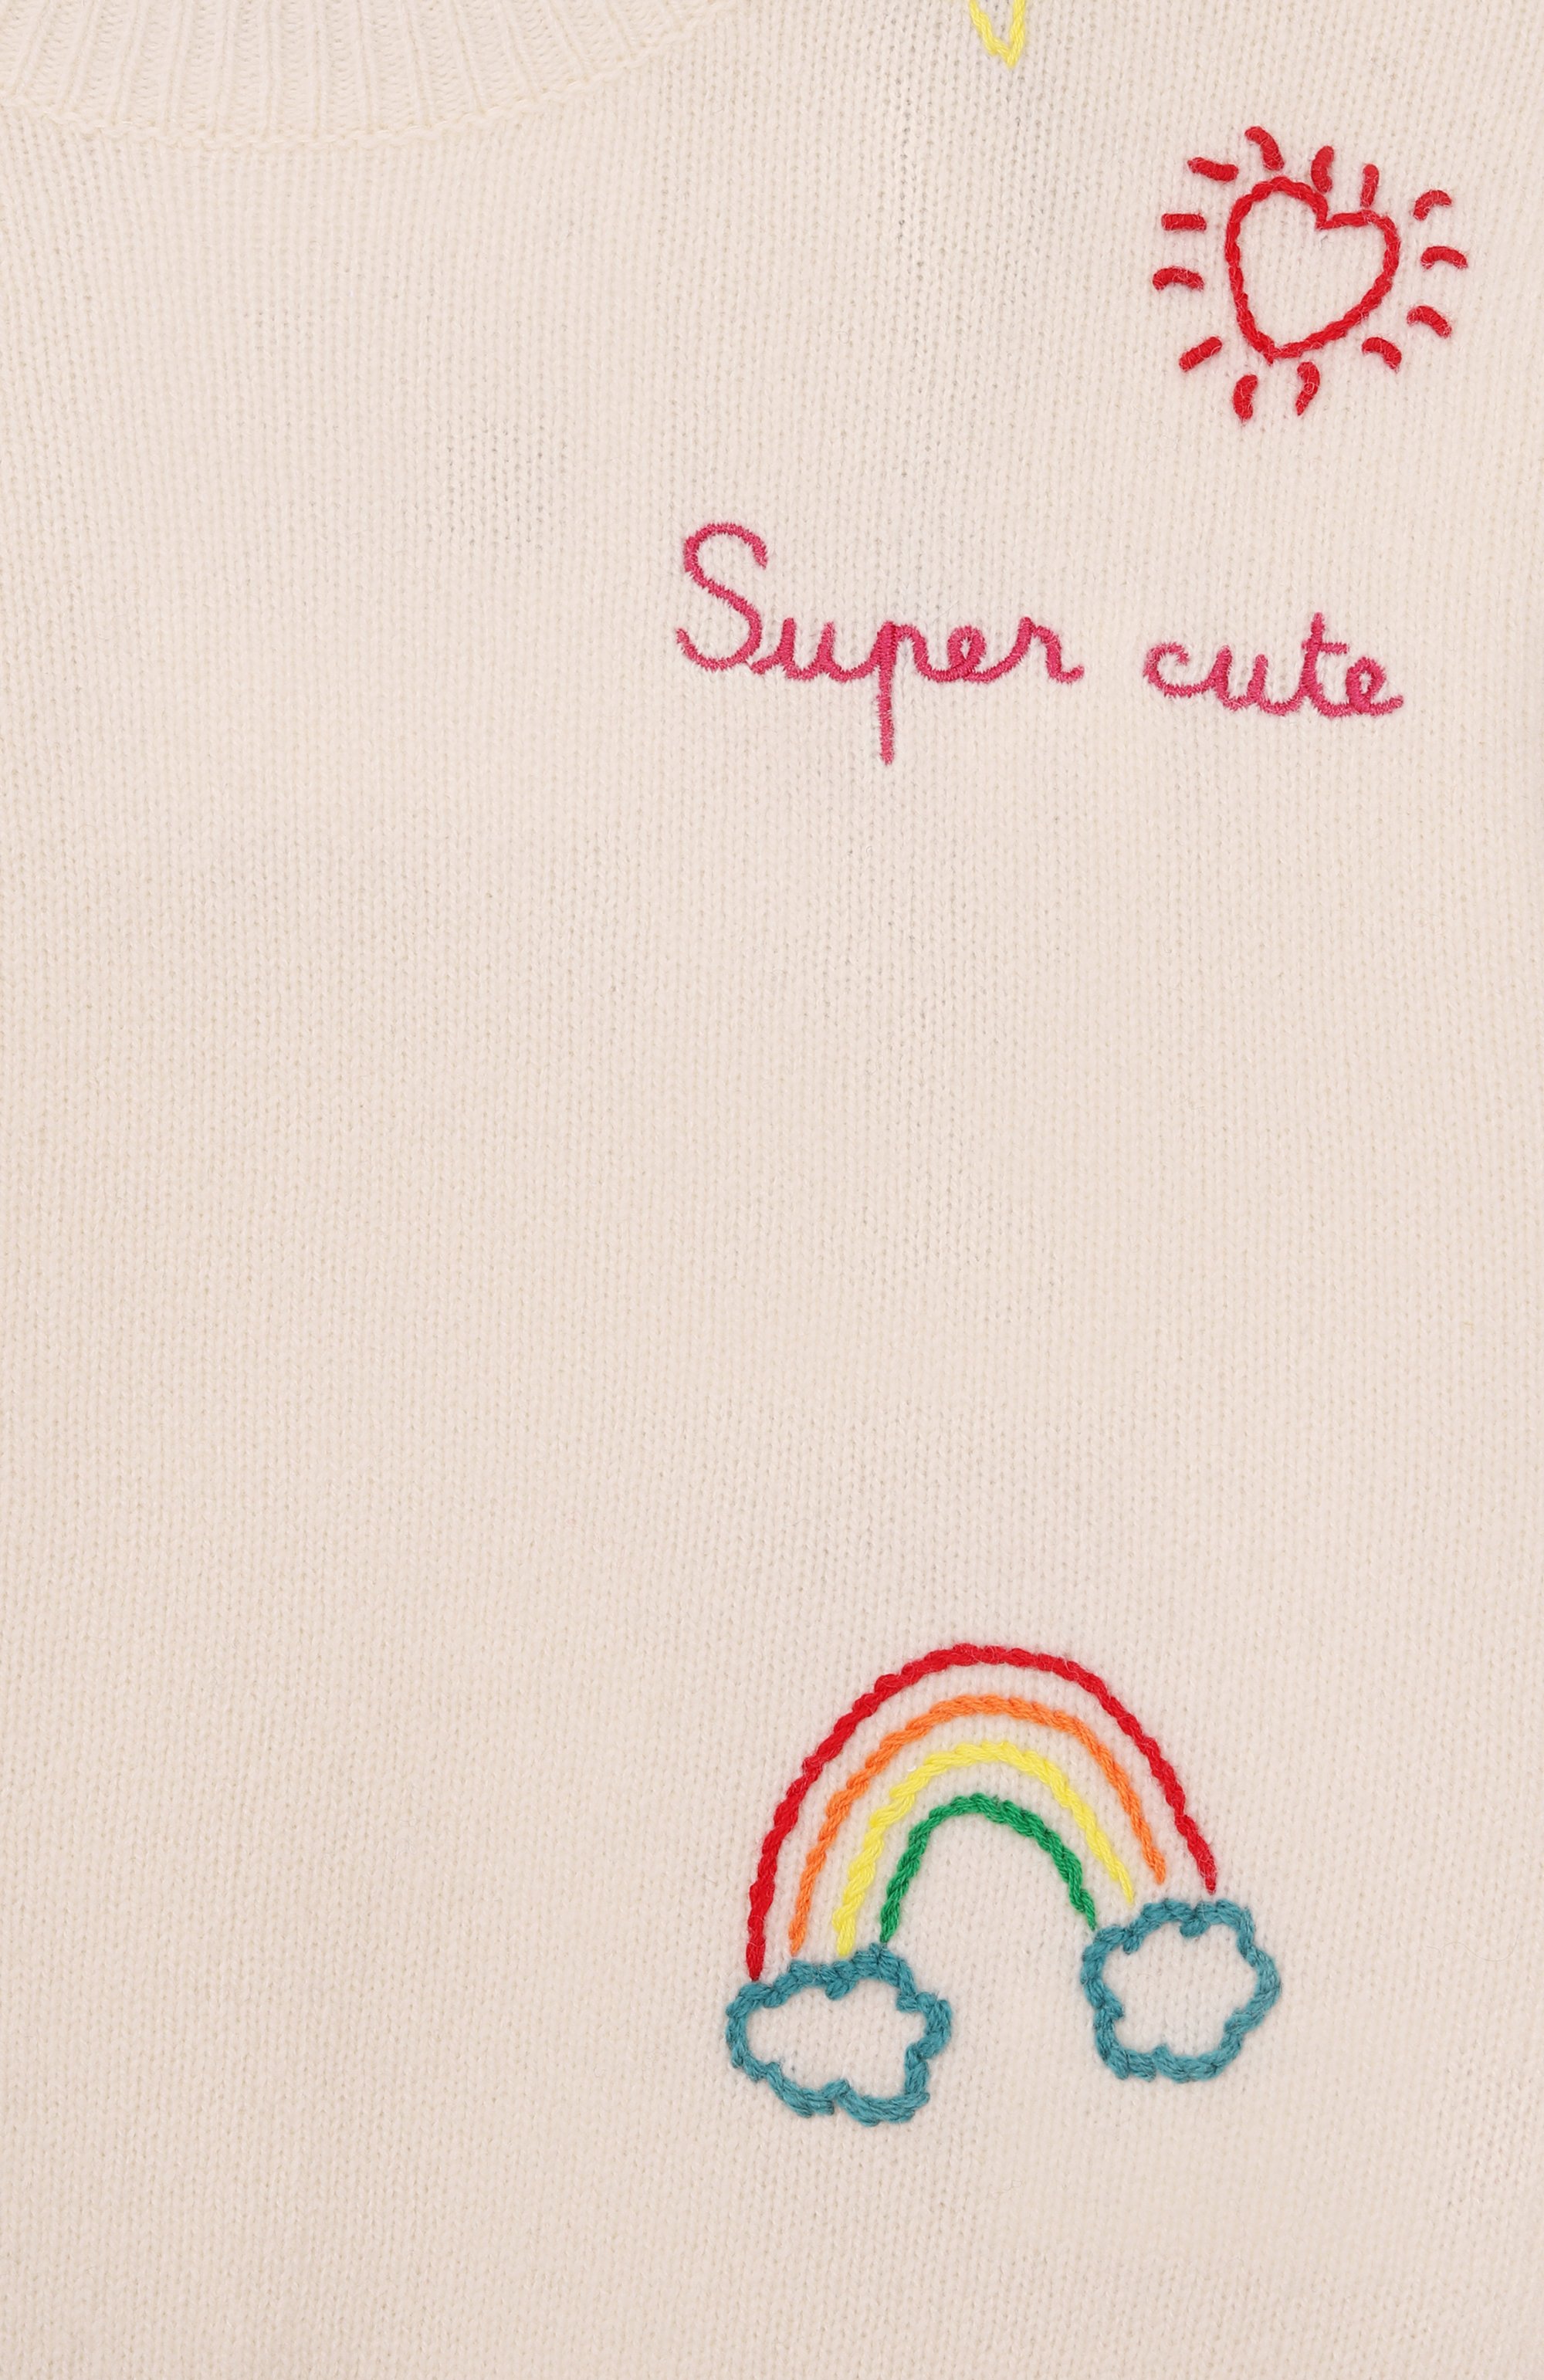 Super cute